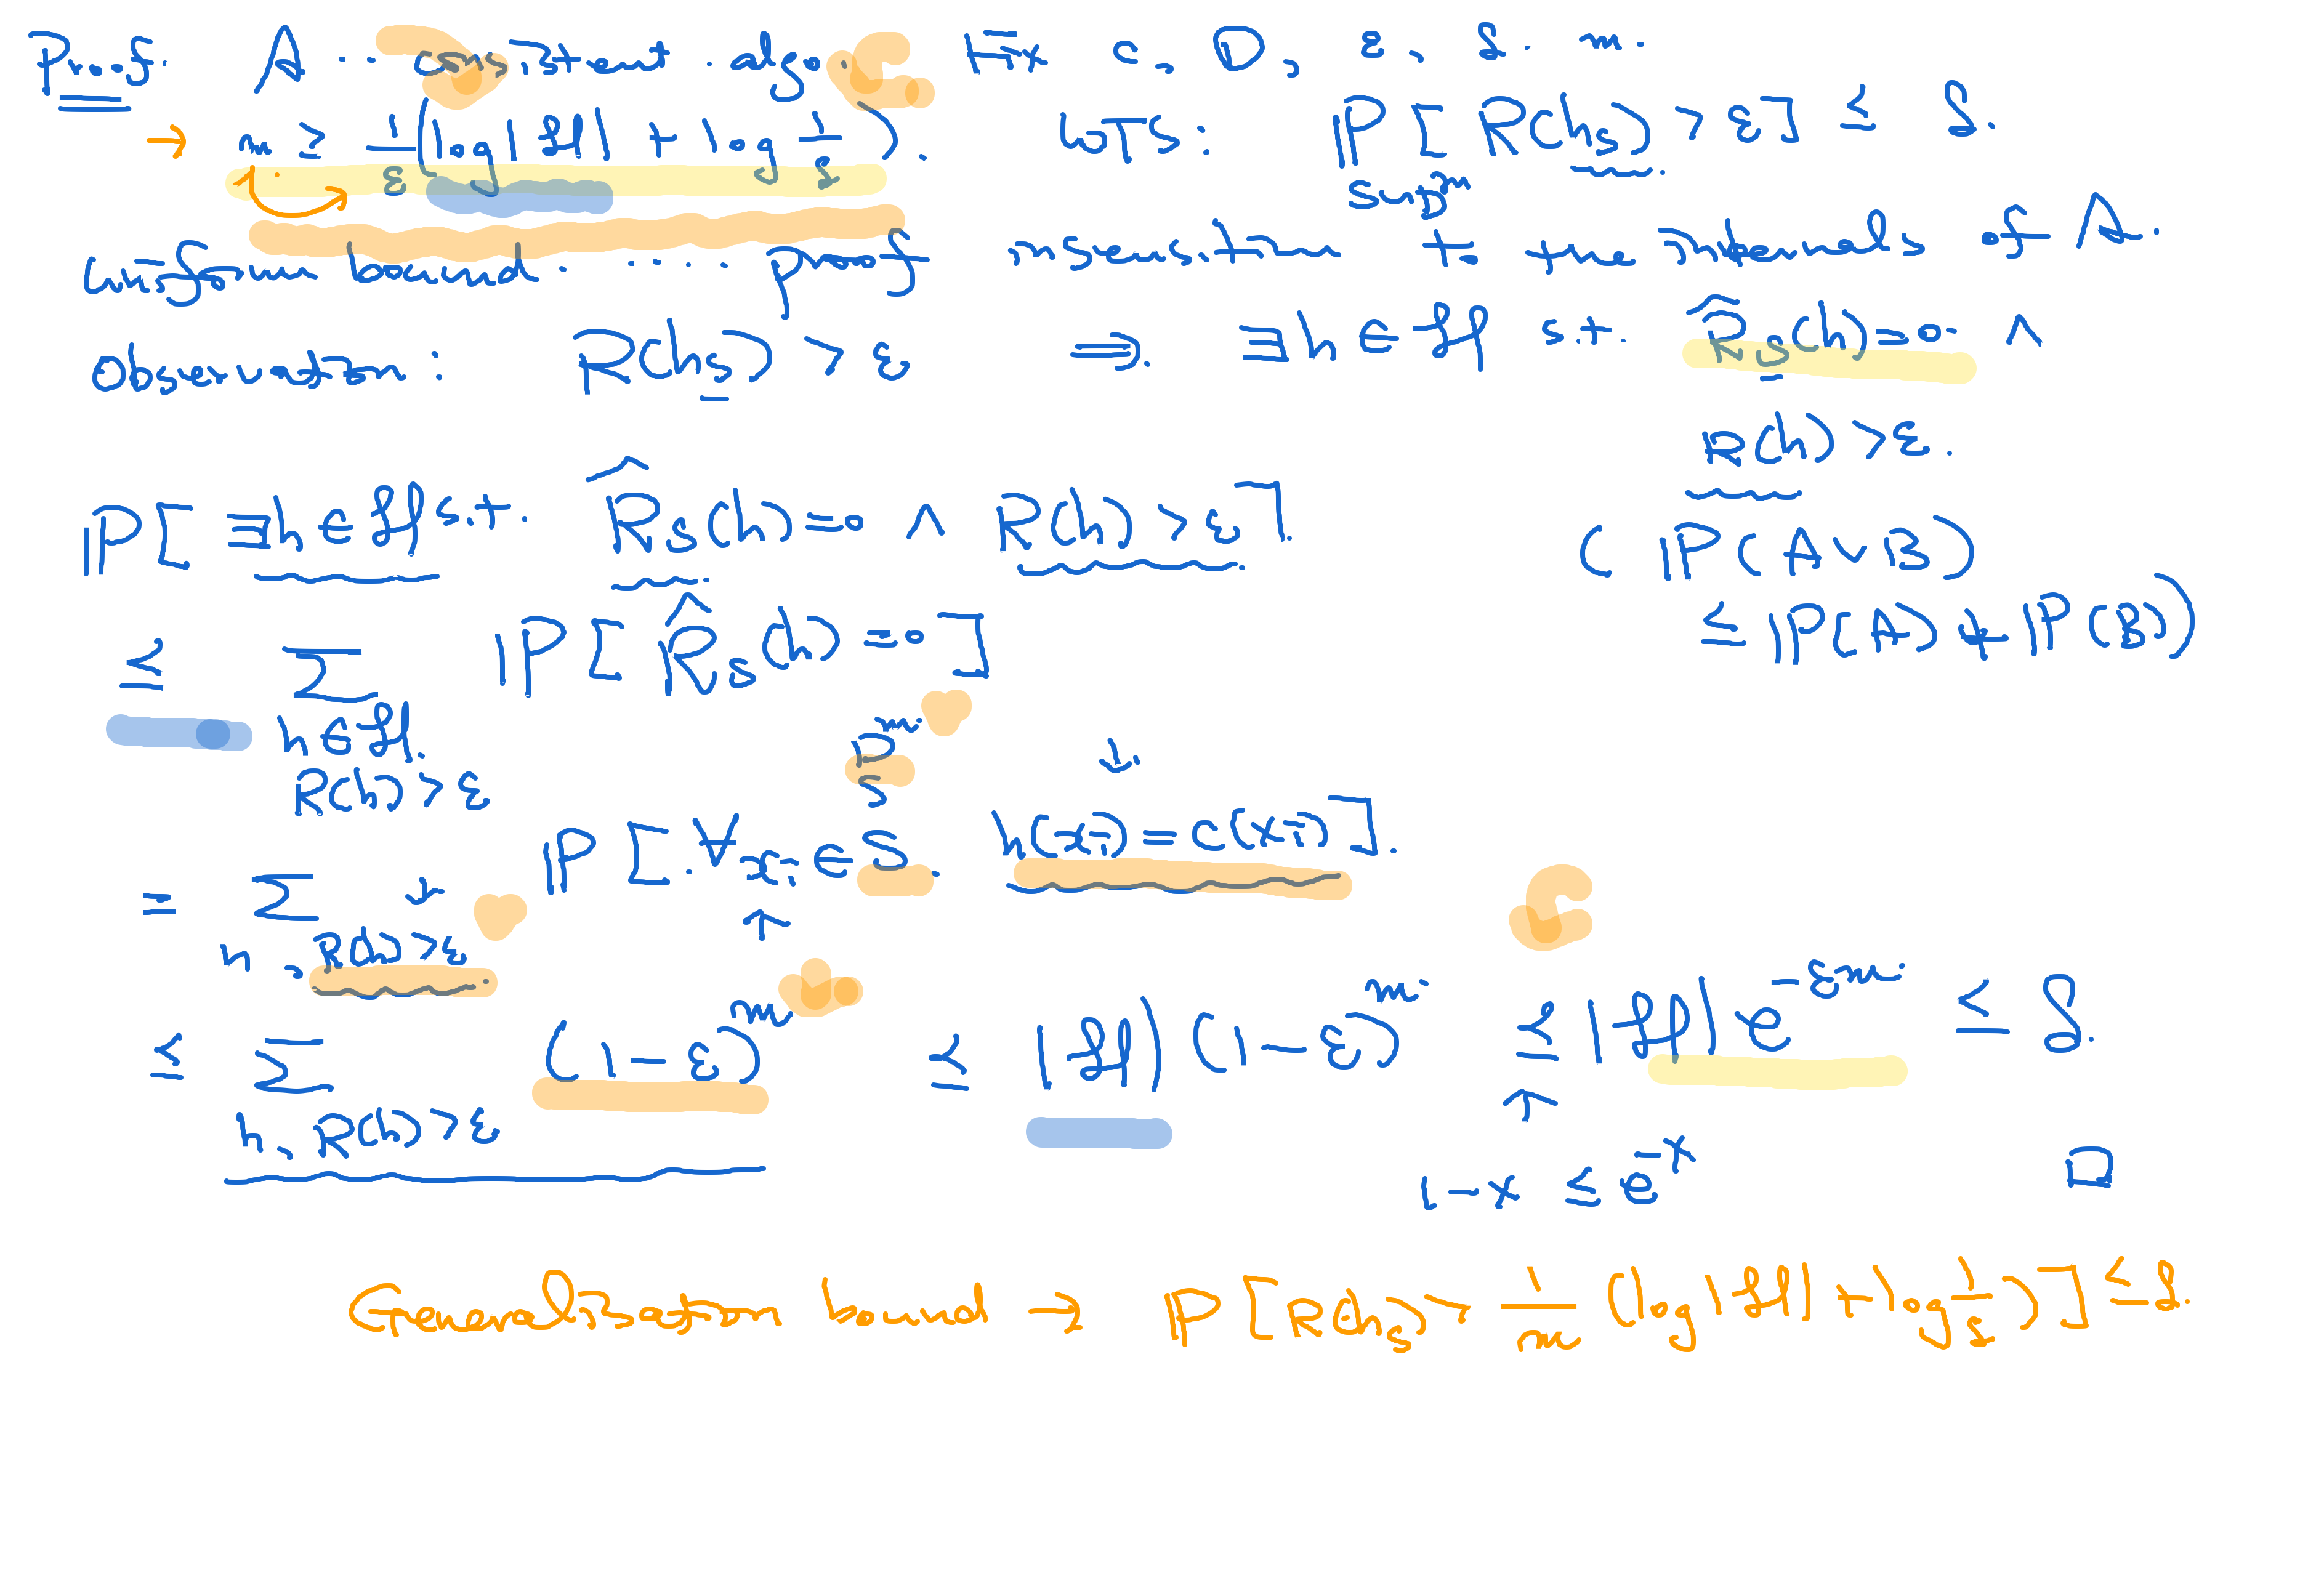 Proof. A ... consistent algo. Fix c, D, ε, δ. m.
→ m ≥ 1/ε (log|H| + log 1/δ). WTS: P_{S∼D^m}[R(h_S) > ε] ≤ δ.
uniform bound ..... proof insensitive to the internals of A.
observation: R(h_S) > ε ⟹ ∃h ∈ H s.t. R̂_S(h) = 0 ∧
R(h) > ε.
P[∃h ∈ H s.t. R̂_S(h) = 0 ∧ R(h) > ε]. (P(A ∨ B)
≤ Σ_{h∈H, R(h)>ε} P[R̂_S(h) = 0] ≤ P(A) + P(B))
D^m
↓
= Σ_{h, R(h)>ε} P[∀x_i ∈ S. h(x_i) = c(x_i)].
≤ Σ_{h, R(h)>ε} (1-ε)^m ≤ |H|(1-ε)^m ≤ |H| e^{-εm} ≤ δ.
↑
1-x ≤ e^{-x} □
Generalization bound → P[R(h_S) > 1/m (log|H| + log 1/δ)] ≤ δ.